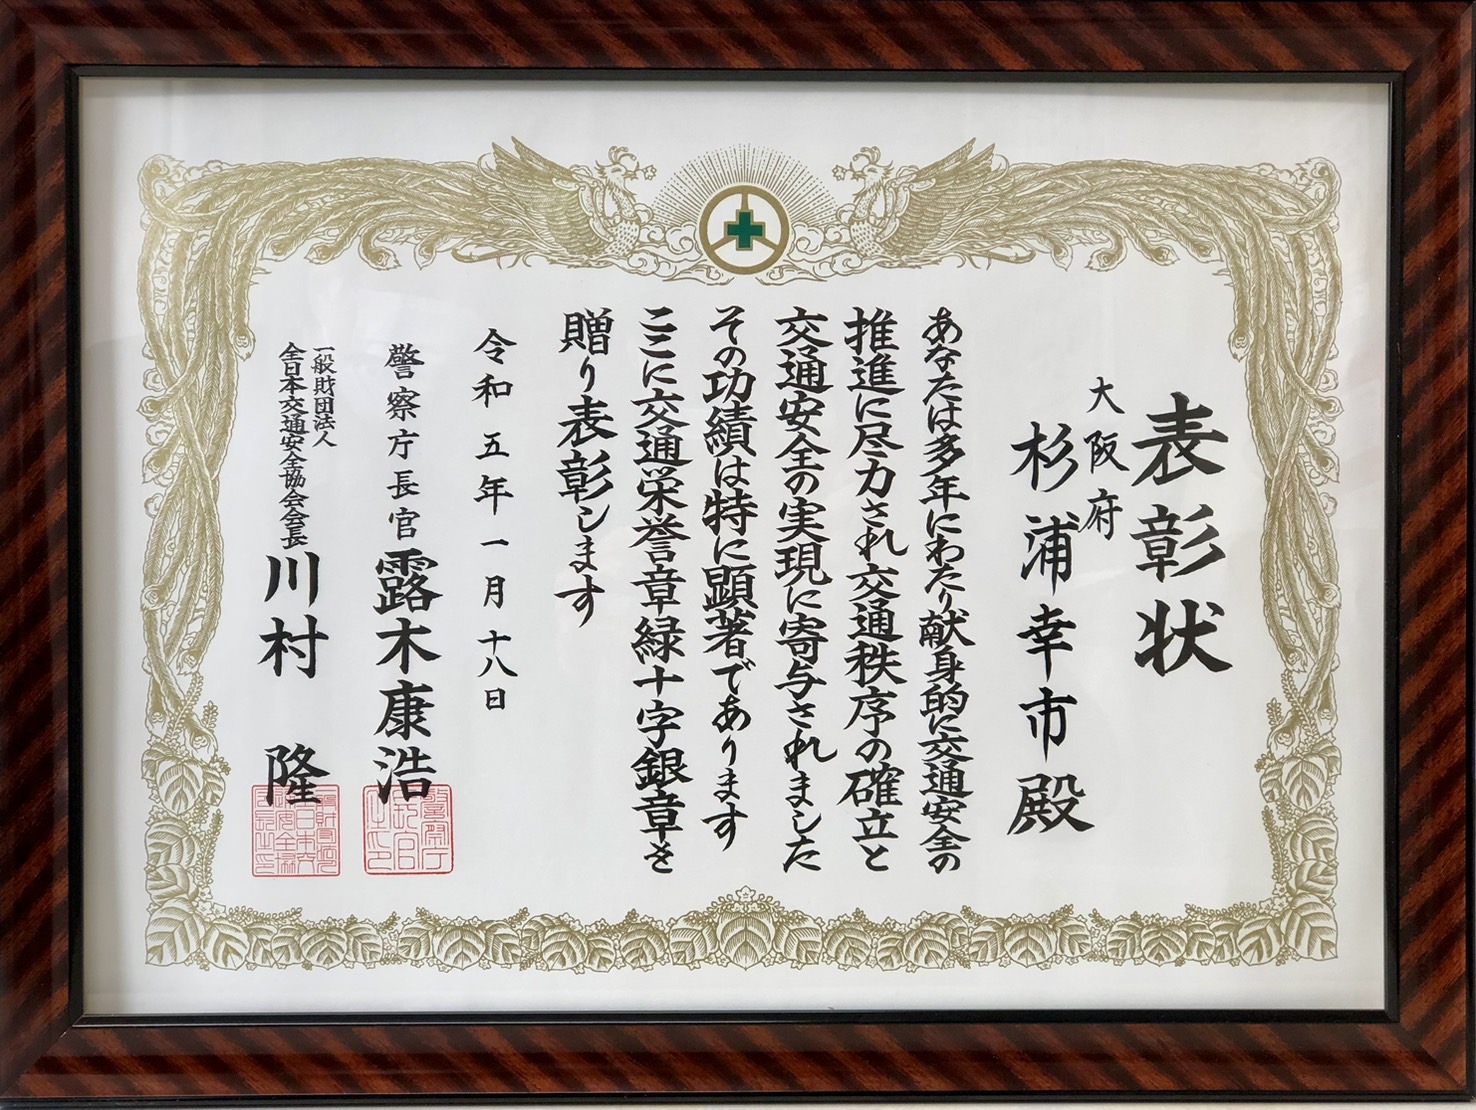 表彰状
大阪府
杉浦幸市殿
あなたは多年にわたり献身的に交通安全の
推進に尽力され交通秩序の確立と
交通安全の実現に寄与されました
その功績は特に顕著であります
ここに交通栄誉章緑十字銀章を
贈り表彰します
令和五年一月十八日
警察庁長官 露木康浩
一般財団法人
全日本交通安全協会会長 川村 隆
警察庁長官之印